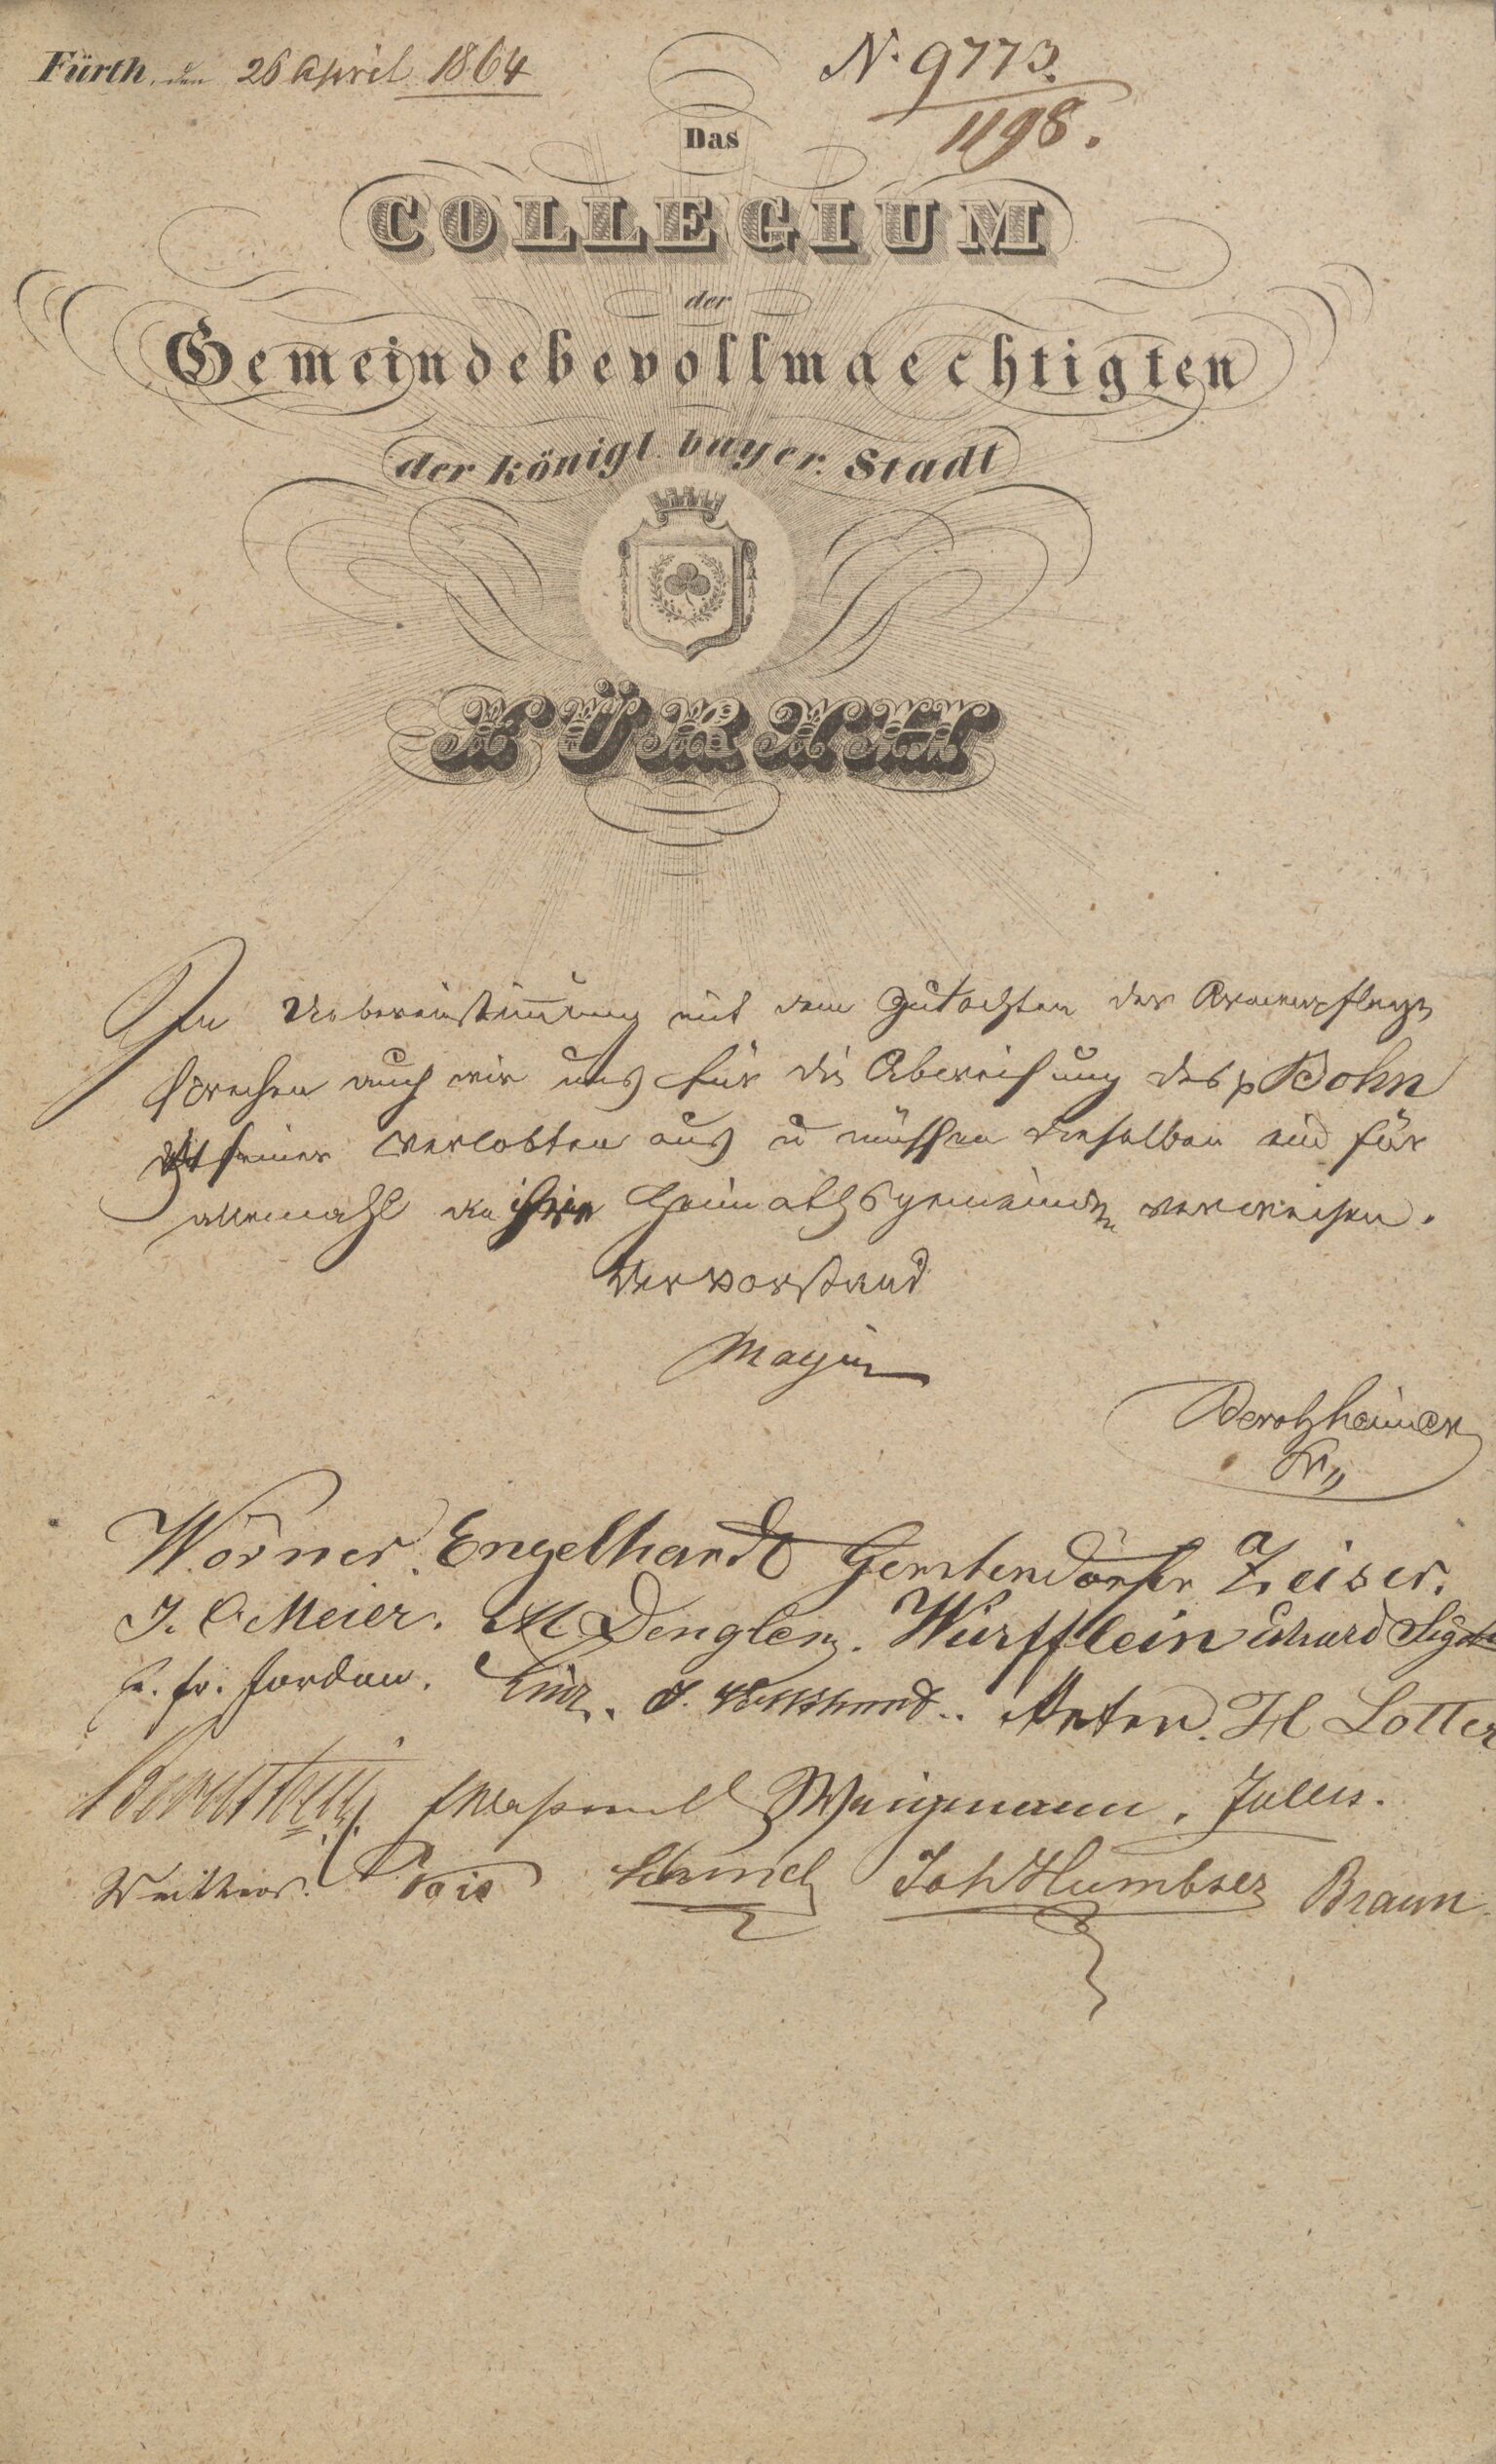 Fürth, den 26 April 1864
N. 9773.
1198.
Das
COLLEGIUM
der
Gemeindebevollmaechtigten
der königl. bayer. Stadt
FÜRTH
In Uebereinstimmung mit dem Gutachten der Armenpflege
sprechen auch wir uns für die Abweisung des p Bohn
u seiner Verlobten aus u müssen dieselben ein für
allemahl an ihre Heimathsgemeinden verweisen.
Der Vorstand
Mayer
Berolzheimer
Wörner. Engelhardt Gerstendörfer Zeiser.
J. C. Meier. M Dengler. Würfflein Eckard
fr. Jordan. J. Volkhardt.. Arter. H Lotter
Weigmann. Julius.
Joh Humbser Braun.